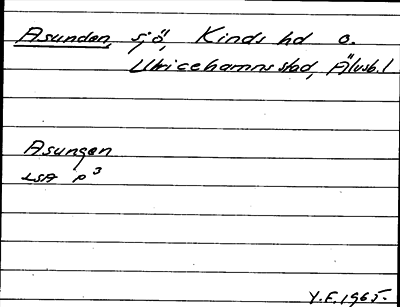 Asunden, sjö, Kinds hd o.
Ulricehamns stad, Älvsb.l
Asungen
LSA P3
Y.F. 1965.